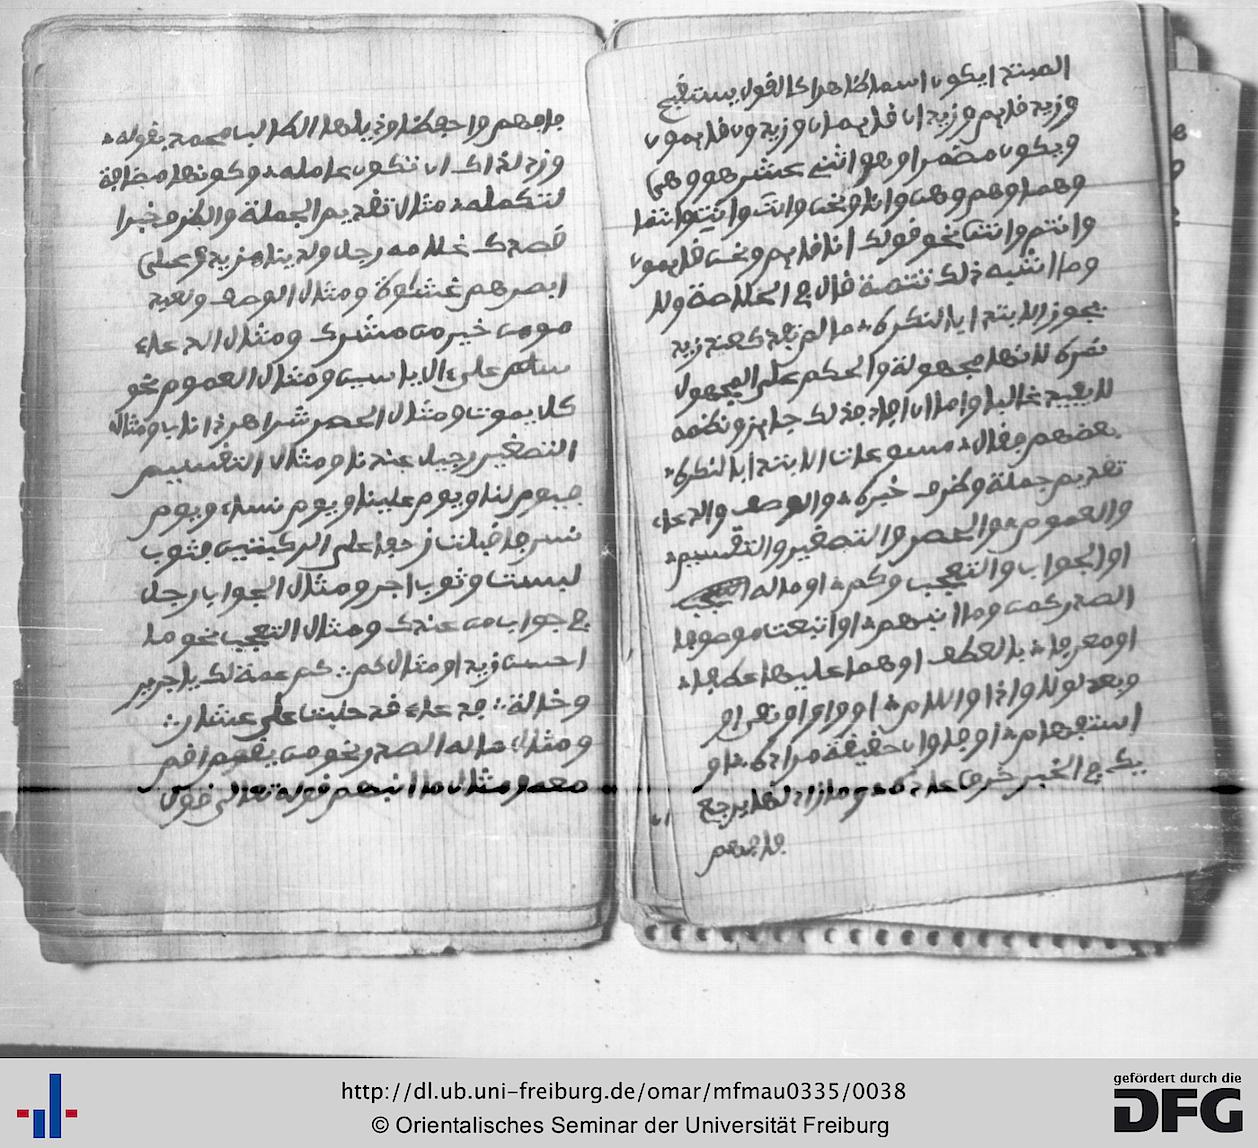 المبتدا يكون اسما ظاهرا كالقول يستقبح
وزيد قايم وزيدان قايمان وزيدون قايمون
ويكون مضمرا وهو اثنى عشر هو وهي
وهما وهم وهن وانا ونحن وانت وانت وانتما
وانتم وانتن نحو قولك انا قايم ونحن قايمون
وما اشبه ذلك تتمة قال في الخلاصة ولا
يجوز الابتدا بالنكره ما لم تفد كعند زيد
نمرة لانها مجهولة والحكم على المجهول
لا يفيد غالبا واما ان افاد فذلك جايز ونظمه
بعضهم فقال مسوغات الابتدا بالنكره
تقديم جملة وظرف خبره والوصف والدعاء
والعموم والحصر والتصغير والتقسيم
او الجواب والتعجب وكم او ما له
الصدر كمن وما انبهم او اتبعت موصوفا
او معرفا بالعطف او هما عليها عطفا
وبعد لولا واذا واللام او واو او نفي او
استفهام او جا وان حقيقة مراده او
يك في الخبر خرق عادة وما زاد لهذا يرجع
فافهم
فافهم واحفظا وذيلها الطالب محمد بقوله
وزد لذاك ان تكون عامله وكونها مضافة
لتكمله مثال تقديم الجملة والظرف خبرا
قصدك غلامه رجل ولدينا مزيد وعلى
ابصرهم غشوة ومثال الوصف ولعبد
مومن خير من مشرك ومثال الدعاء
سلم على ال ياسين ومثال العموم نحو
كل يموت ومثال الحصر شر اهر ذا ناب ومثال
التصغير رجيل عندنا ومثال التقسيم
فيوم لنا ويوم علينا ويوم نساء ويوم
نسر فاقبلت زحفا على الركبتين فثوب
لبست وثوب اجر ومثال الجواب رجل
في جواب من عندك ومثال التعجب نحو ما
احسن زيدا ومثال كم ∴ كم عمة لك يا جرير
وخالة ∴ فدعاء قد حلبت علي عشار ∴
ومثال ما له الصدر نحو من يقم اقم
معه ومثال ما انبهم قوله تعالى قول
http://dl.ub.uni-freiburg.de/omar/mfmau0335/0038
© Orientalisches Seminar der Universität Freiburg
gefördert durch die
DFG